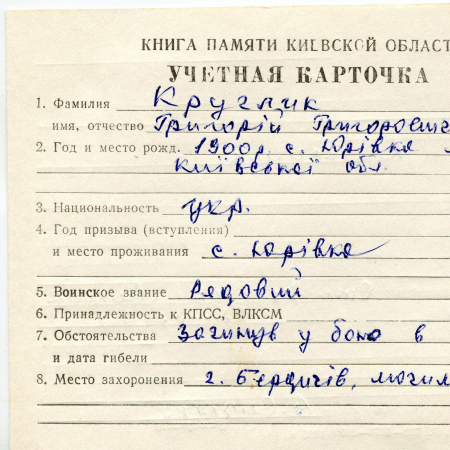 КНИГА ПАМЯТИ КИЕВСКОЙ ОБЛАСТ
УЧЕТНАЯ КАРТОЧКА
1. Фамилия Круглик
имя, отчество Григорій Григорович
2. Год и место рожд. 1900р. с. Юрівка
Київської обл.
3. Национальность укр.
4. Год призыва (вступления)
и место проживания с. Юрівка
5. Воинское звание Рядовий
6. Принадлежность к КПСС, ВЛКСМ
7. Обстоятельства Загинув у бою в
и дата гибели
8. Место захоронения г. Бердичів, могил